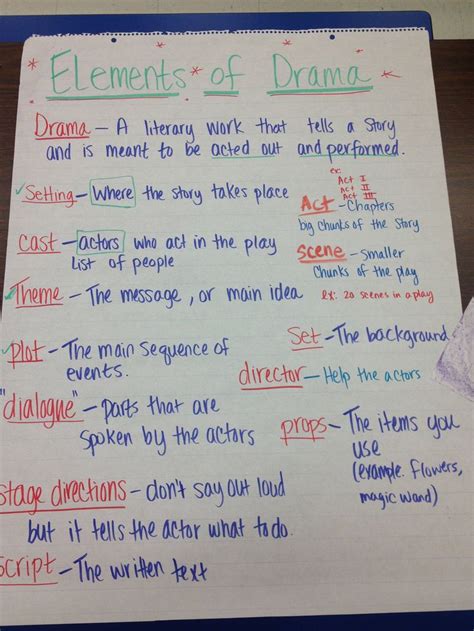 * Elements * of Drama *
Drama - A literary work that tells a story
and is meant to be acted out and performed.
Setting - Where the story takes place
cast - actors who act in the play
List of people
Theme - The message, or main idea
plot - The main sequence of
events.
"dialogue" - parts that are
spoken by the actors
stage directions - don't say out loud
but it tells the actor what to do.
script - The written text
ex:
Act I
Act II
Act III
Act - Chapters
big chunks of the story
scene - smaller
chunks of the play
ex: 20 scenes in a play
Set - The background
director - Help the actors
props - The items you
use
(example. flowers,
magic wand)